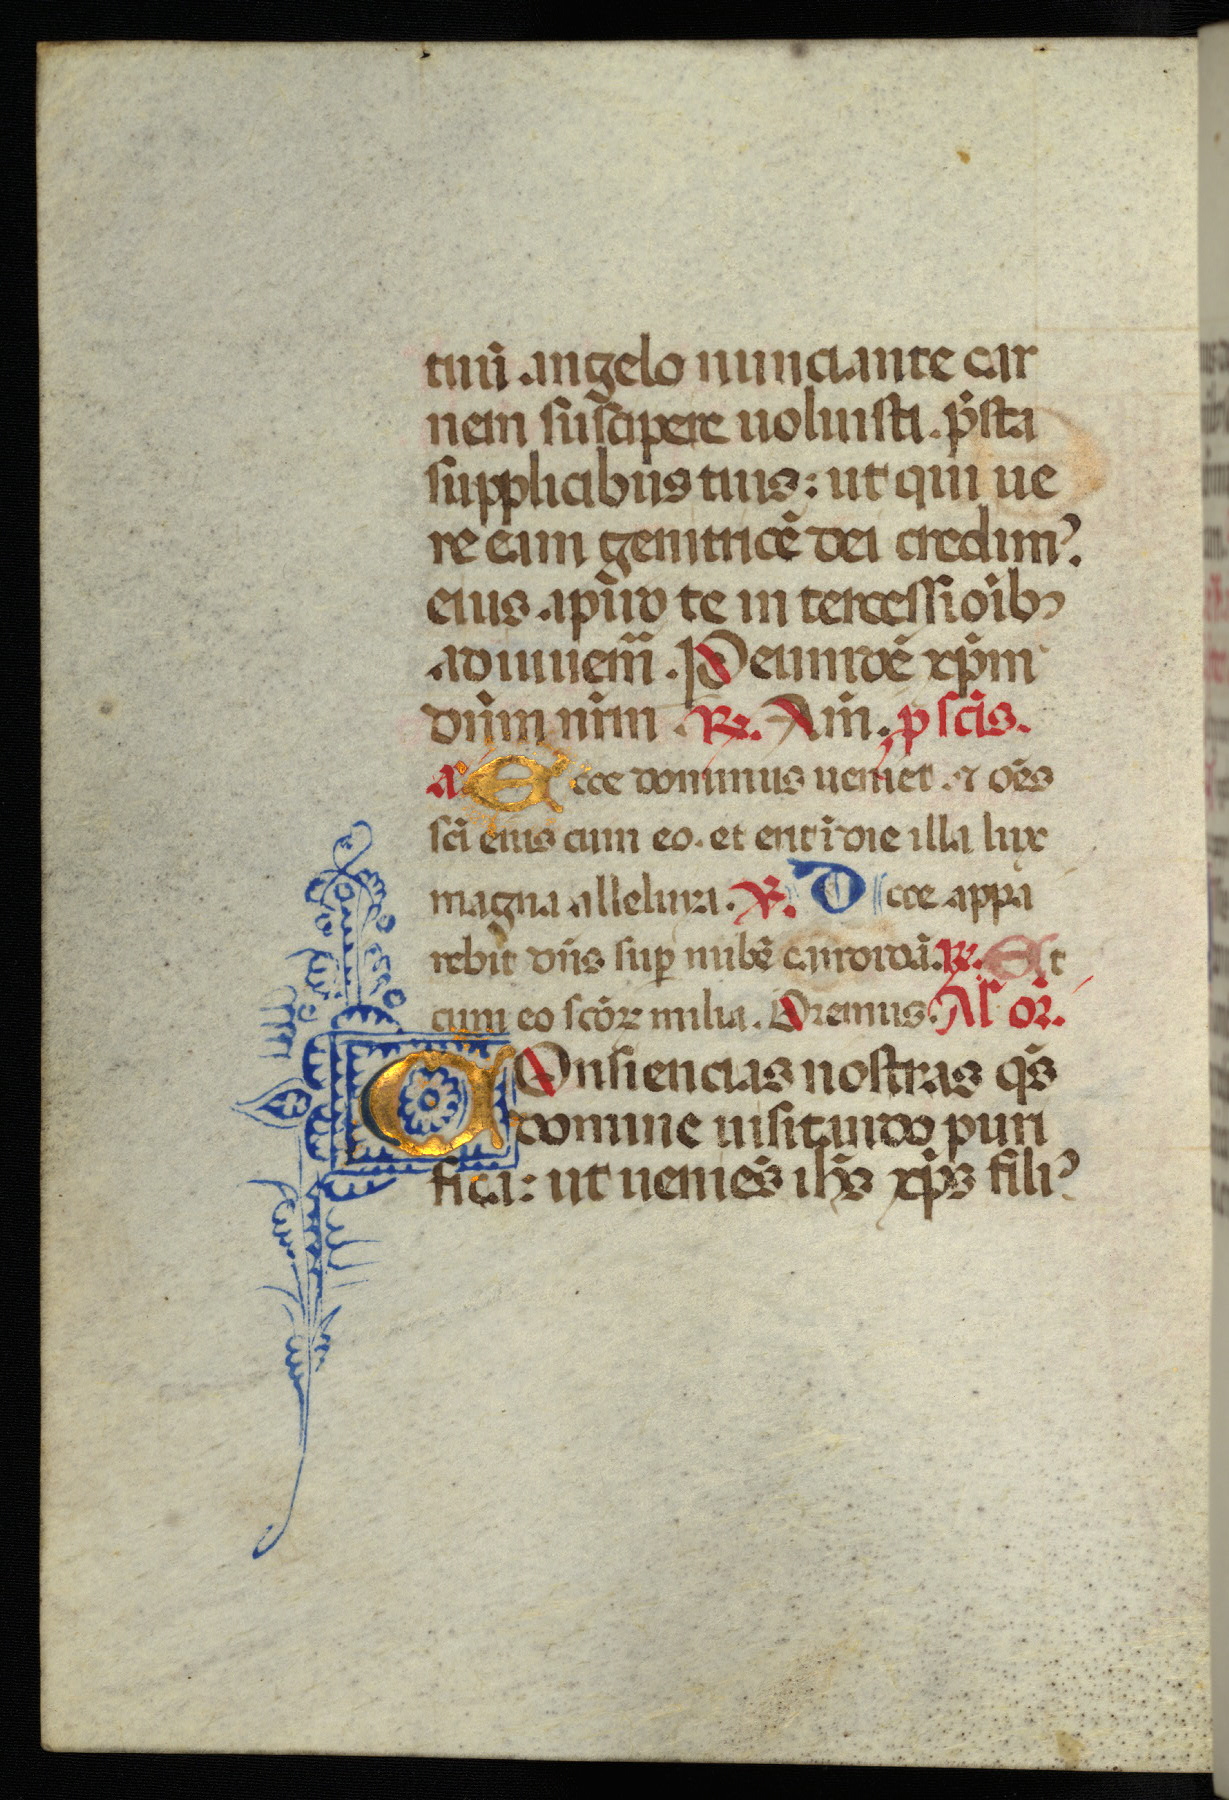 tuũ angelo nunciante car
nem suscipere uoluisti. p̃sta
supplicibus tuis: ut qui ue
re eam genitricẽ dei credimꝰ.
eius apud te in tercessiõibꝫ
adiuuem̃. Per eundẽ xp̃m
dñm nr̃m. ℞. Am̃. p scĩs.
a᷈ Ecce dominus ueniet ⁊ oẽs
sc̃i eius cum eo. et erit ĩ die illa lux
magna alleluya. ℣. Ecce appa
rebit dñs sup̱ nubẽ candidã. ℞. Et
cum eo sc̃oꝝ milia. Oremus. Al' or̃.
COnsiencias nostras qs̃
domine uisitando puri
fica: ut ueniẽs ihs̃ xp̃s filiꝰ